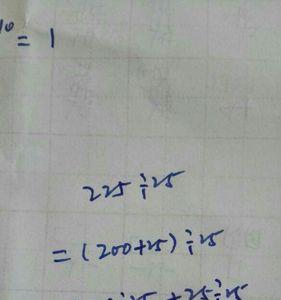 10 = 1
225÷25
=(200+25)÷25
÷25+25÷25